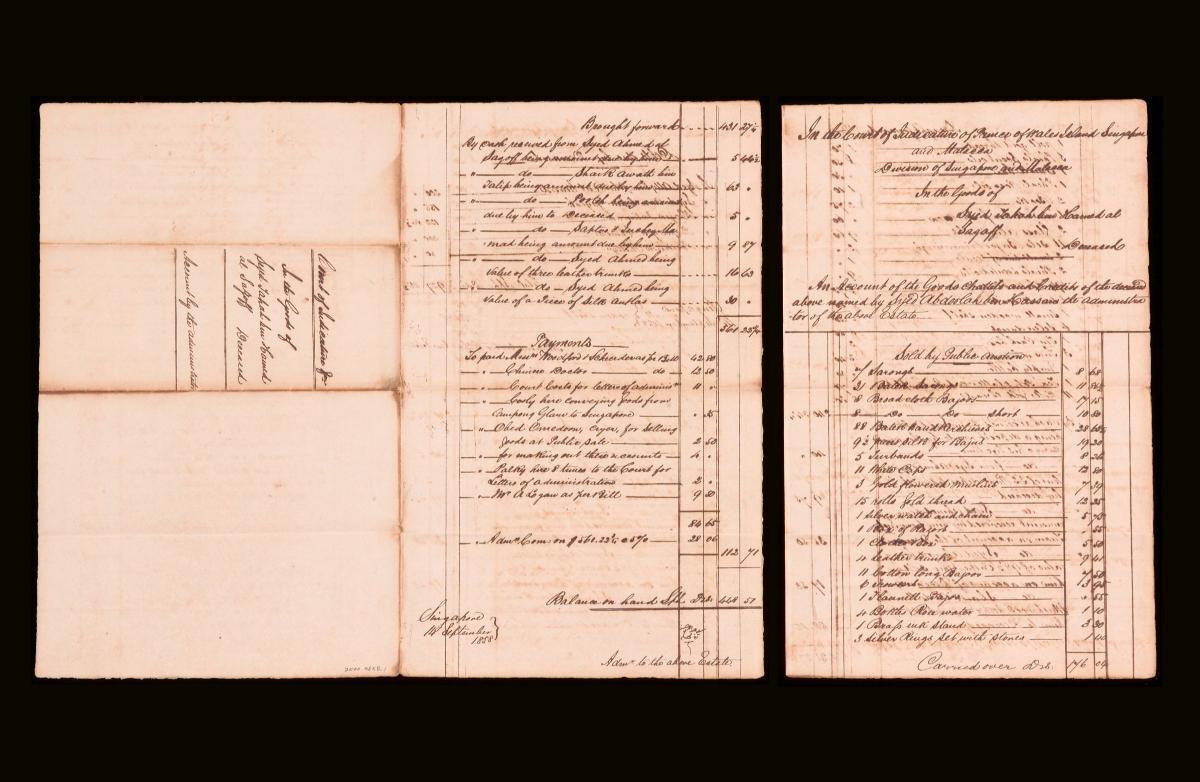 Court of Judicature &c
In the Goods of
Syed Tahah bin Hamed
al Sagoff Deceased
Account by the administrator
Brought forward 431 27½
By cash received from Syed Ahmed al
Sagoff being amount due by him 5
" do Shaik Awath bin
Talip being amount due by him 63 "
" do being amount
due by him to Deceased 5 "
" do
mad being amount due by him 9 87
" do Syed Ahmed being
value of three leather trunks 16 63
" do Syed Ahmed being
value of a Piece of Silk 30 "
561 23½
Payments
To paid Messrs Woodford & 42 50
" Chinese Doctor do 12 50
" Court Costs for letters of administn 11 "
" Cooly hire conveying goods from
Campong Glam to Singapore " 35
" Obed Cryer, for selling
goods at Public sale 2 50
" for making out these accounts 4 "
" Palky hire 8 times to the Court for
Letters of administration 2 "
" Mr A Logan as per Bill 9 80
84 65
" Admrs Comn on $561.23½ @ 5 p% 28 06
112 71
Balance on hand Sp. Drs. 448 51
Singapore
September
1858
Admr to the above Estate
In the Court of Judicature of Prince of Wales Island Singapore
and Malacca
Division of Singapore and Malacca
In the Goods of
Syed Tahah bin Hamed al
Sagoff
Deceased
An Account of the Goods Chattels and Credits of the deceased
above named by Syed Abdoolah bin Hassan the administra
tor of the above Estate
Sold by Public Auction
7 Sarongs 8 68
21 Batek Sarongs 11
8 Broad cloth Bajoos 7 15
8 Do Do short 10 80
88 Batek Handkerchiefs 28
silk for Bajus 19 20
5 Turbands 8
11 White Caps 12 80
3 Gold flowered muslins 7
15 rolls Gold thread 12 25
1 Silver watch and chain 5 75
1 of Razors " 55
1 5 50
4 Leather trunks 9
11 Cotton long Bajoos 7 50
6 Trowsers 3 95
1 Flannell Bajoo " 55
4 Bottles Rose water 1 10
1 Brass ink stand 3 30
3 Silver Rings set with stones 1
Carried over Drs. 176 04